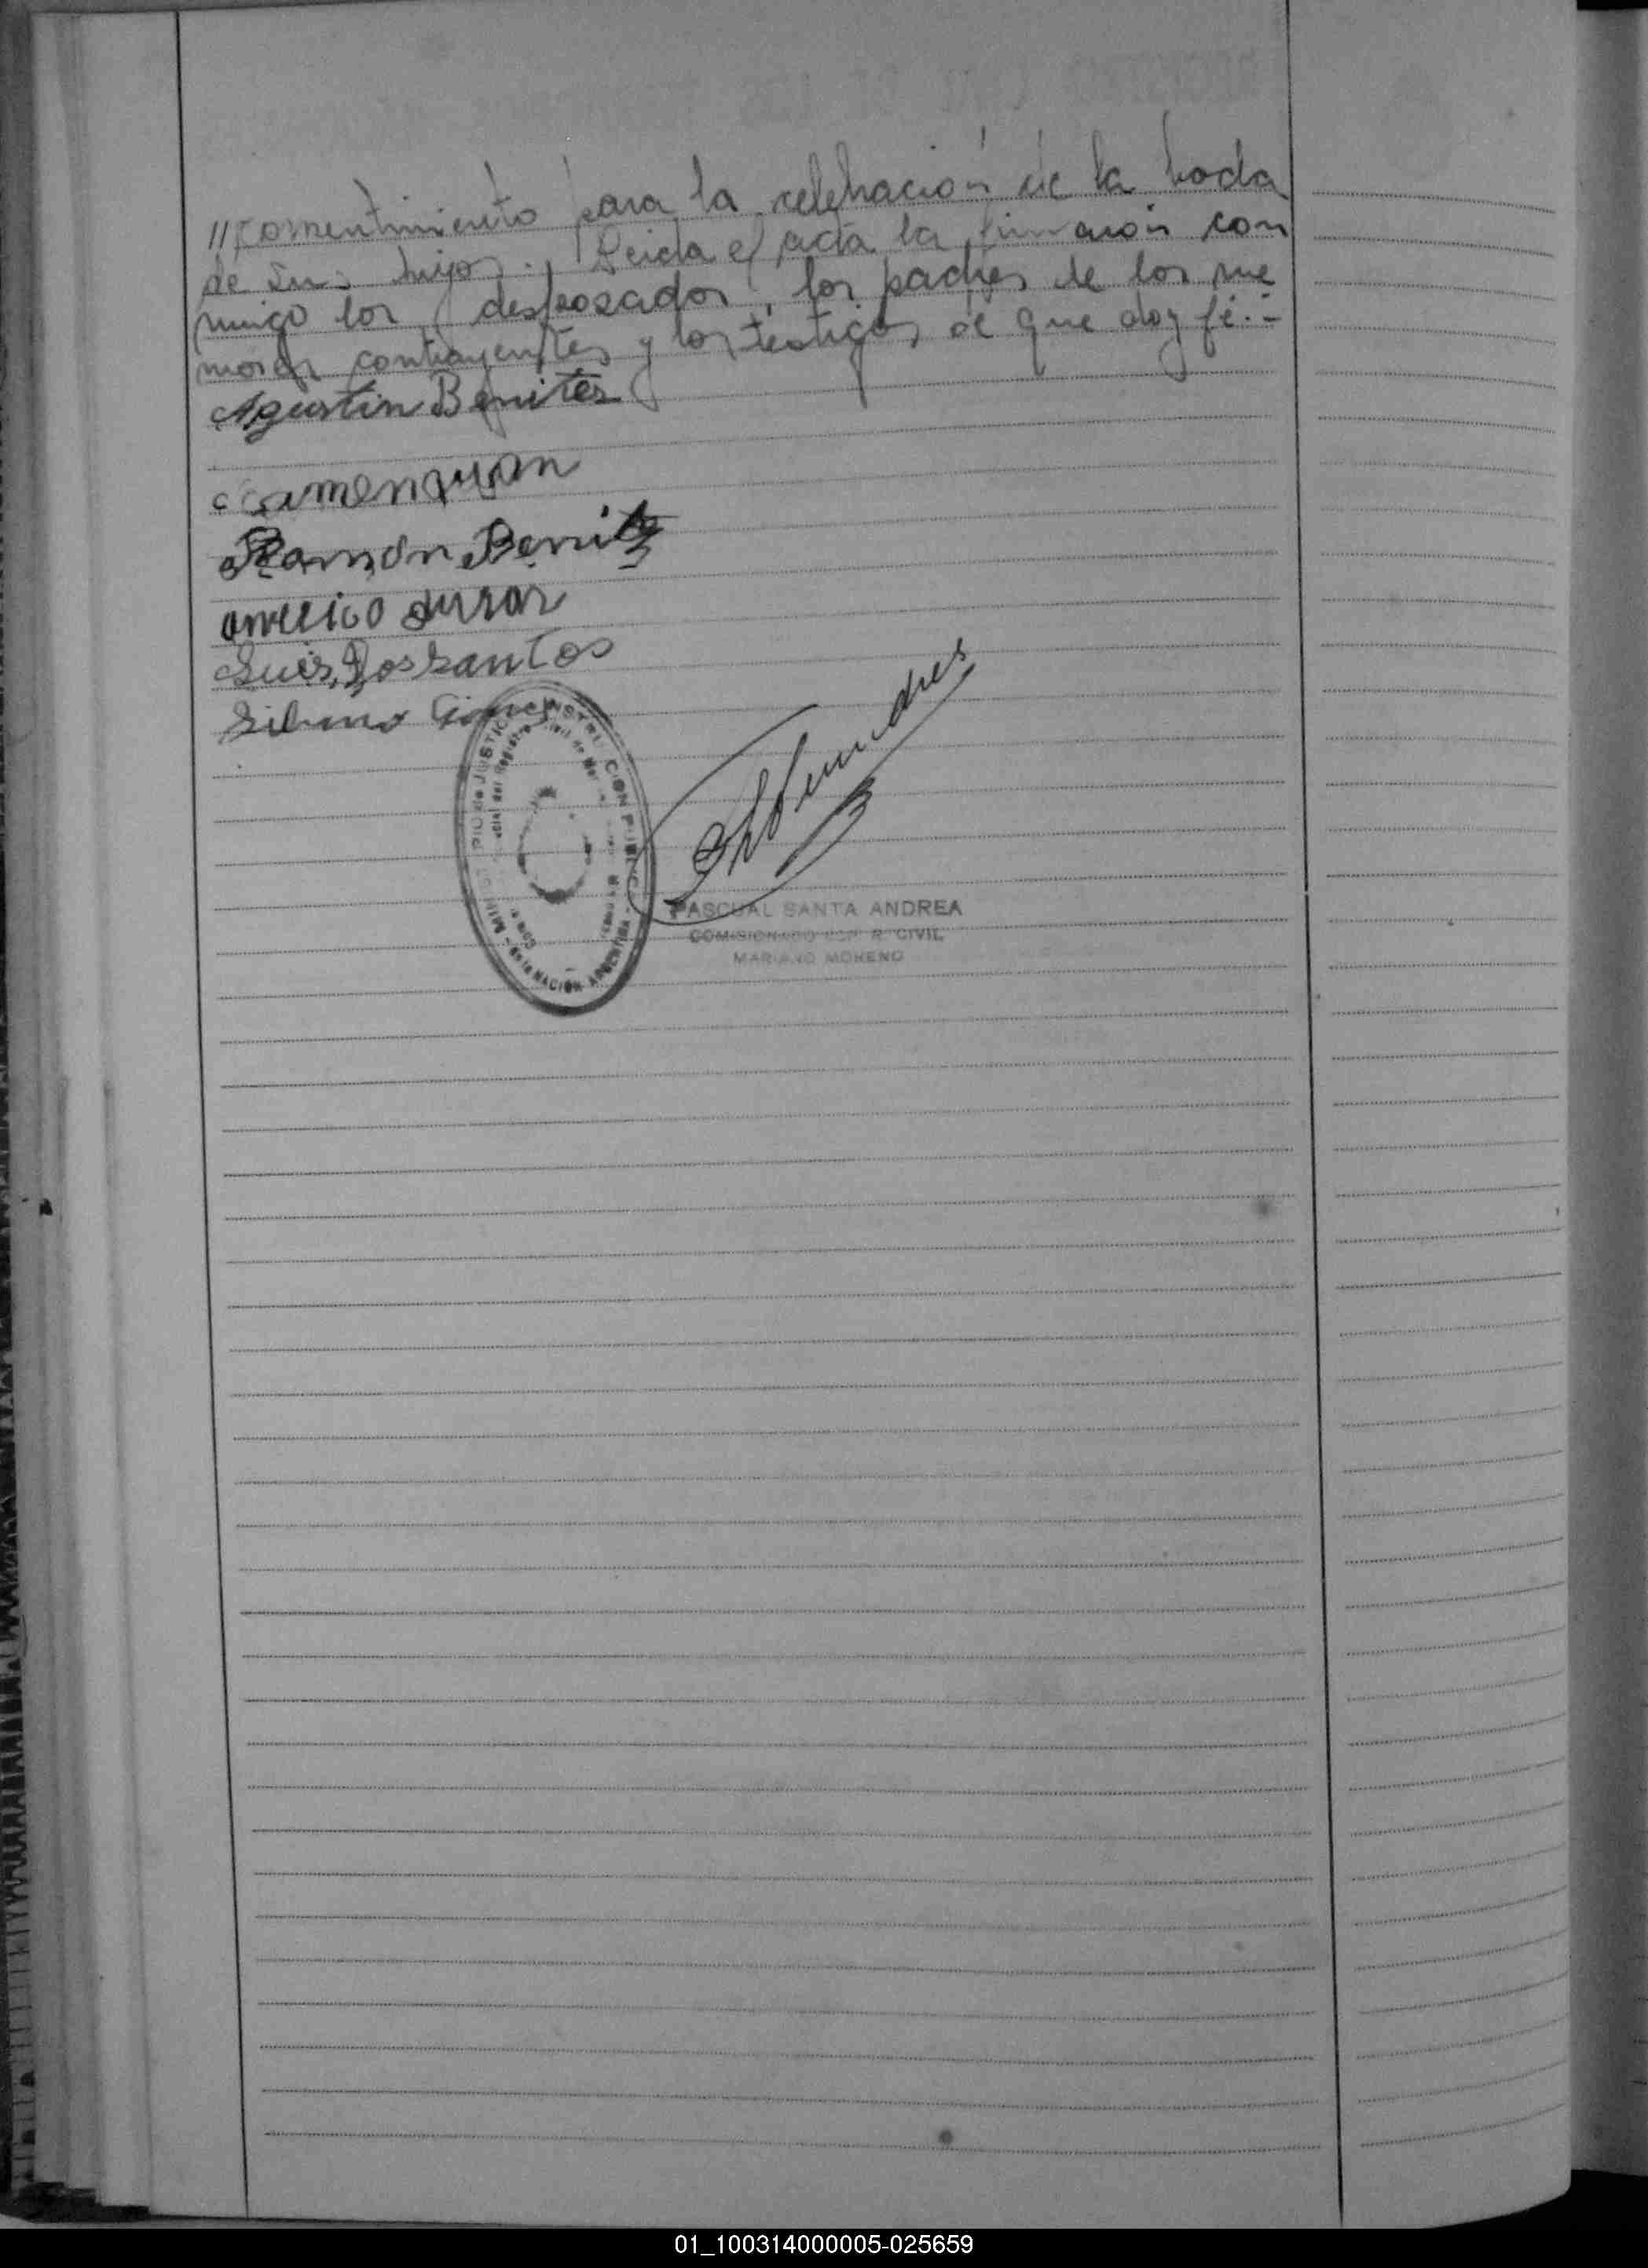 //consentimiento para la celebración de la boda
de sus hijos. Leida el acta la firmaron con
migo los desposados, los padres de los me
nores contrayentes y los testigos de que doy fé.-
Agustin Benites
Ramón Benitz
americo duran
Luis Dos santos
MINISTERIO de JUSTICIA e INSTRUCCION PUBLICA
de la NACION ARGENTINA
PASCUAL SANTA ANDREA
COMISIONADO ESP. R. CIVIL
MARIANO MORENO
01_100314000005-025659